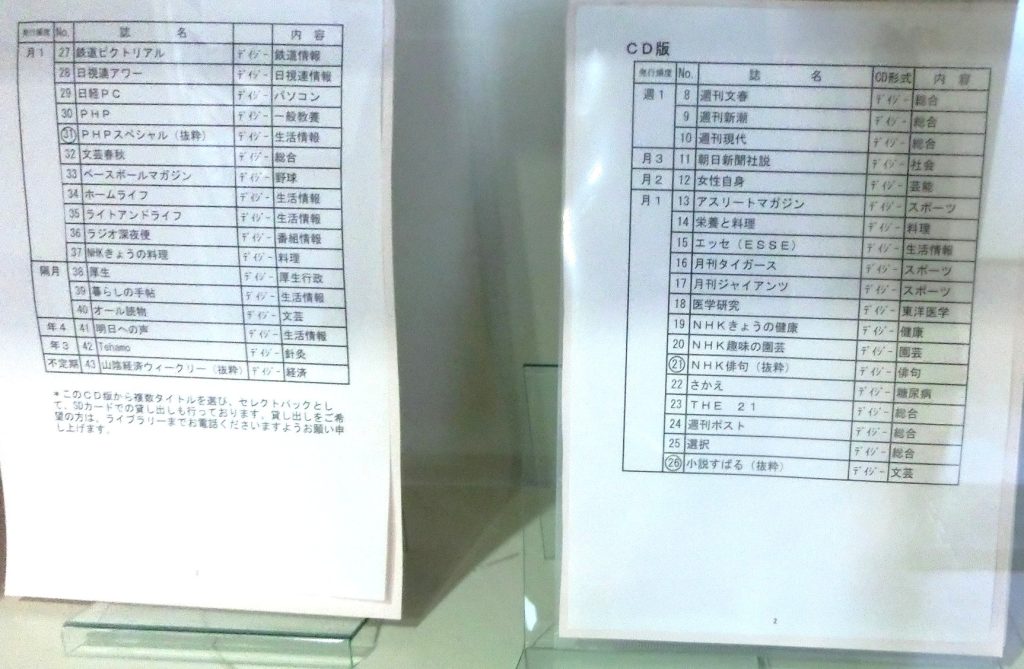 発行頻度 No. 誌 名 内 容
月1 27 鉄道ピクトリアル デイジー 鉄道情報
28 日視連アワー デイジー 日視連情報
29 日経PC デイジー パソコン
30 PHP デイジー 一般教養
㉛ PHPスペシャル（抜粋） デイジー 生活情報
32 文芸春秋 デイジー 総合
33 ベースボールマガジン デイジー 野球
34 ホームライフ デイジー 生活情報
35 ライトアンドライフ デイジー 生活情報
36 ラジオ深夜便 デイジー 番組情報
37 NHKきょうの料理 デイジー 料理
隔月 38 厚生 デイジー 厚生行政
39 暮らしの手帖 デイジー 生活情報
40 オール読物 デイジー 文芸
年4 41 明日への声 デイジー 生活情報
年3 42 Tehamo デイジー 針灸
不定期 43 山陰経済ウィークリー（抜粋） デイジー 経済
＊このCD版から複数タイトルを選び、セレクトパックとし
て、SDカードでの貸し出しも行っております。貸し出しをご希
望の方は、ライブラリーまでお電話くださいますようお願い申
し上げます。
CD版
発行頻度 No. 誌 名 CD形式 内 容
週1 8 週刊文春 デイジー 総合
9 週刊新潮 デイジー 総合
10 週刊現代 デイジー 総合
月3 11 朝日新聞社説 デイジー 社会
月2 12 女性自身 デイジー 芸能
月1 13 アスリートマガジン デイジー スポーツ
14 栄養と料理 デイジー 料理
15 エッセ（ESSE） デイジー 生活情報
16 月刊タイガース デイジー スポーツ
17 月刊ジャイアンツ デイジー スポーツ
18 医学研究 デイジー 東洋医学
19 NHKきょうの健康 デイジー 健康
20 NHK趣味の園芸 デイジー 園芸
㉑ NHK俳句（抜粋） デイジー 俳句
22 さかえ デイジー 糖尿病
23 THE 21 デイジー 総合
24 週刊ポスト デイジー 総合
25 選択 デイジー 総合
㉖ 小説すばる（抜粋） デイジー 文芸
2